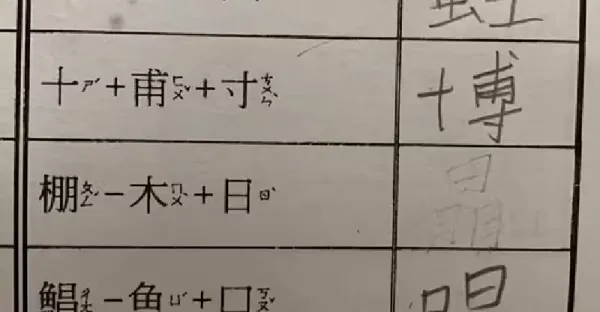 十ㄕˊ+甫ㄈㄨˇ+寸ㄘㄨㄣˋ 博
棚ㄆㄥˊ−木ㄇㄨˋ+日ㄖˋ
鯧ㄔㄤ−魚ㄩˊ+口ㄎㄡˇ 唱